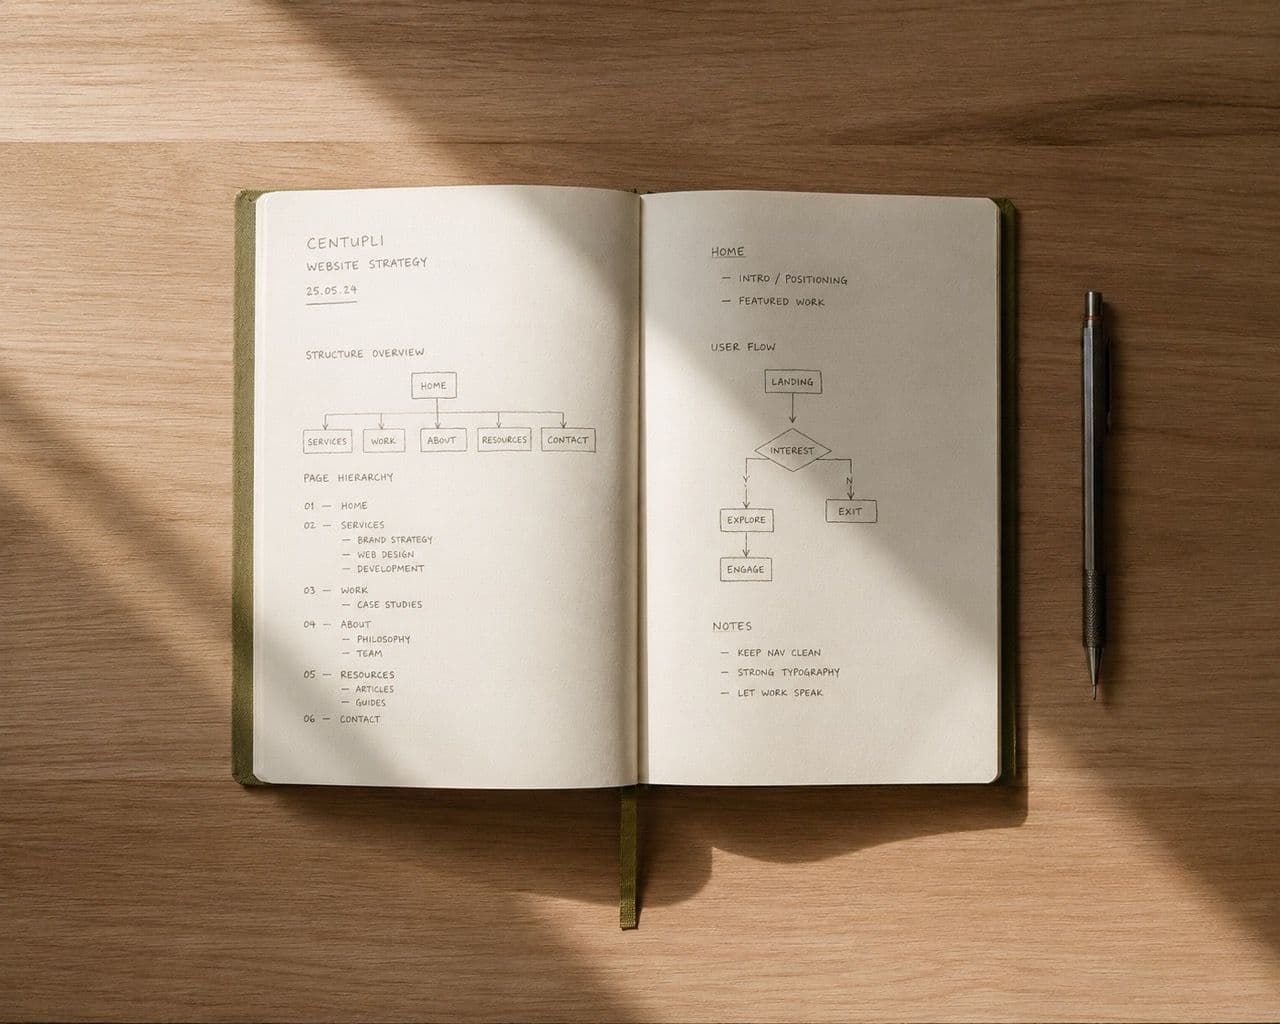 CENTUPLI
WEBSITE STRATEGY
25.05.24
STRUCTURE OVERVIEW
HOME
SERVICES WORK ABOUT RESOURCES CONTACT
PAGE HIERARCHY
01 — HOME
02 — SERVICES
— BRAND STRATEGY
— WEB DESIGN
— DEVELOPMENT
03 — WORK
— CASE STUDIES
04 — ABOUT
— PHILOSOPHY
— TEAM
05 — RESOURCES
— ARTICLES
— GUIDES
06 — CONTACT
HOME
— INTRO / POSITIONING
— FEATURED WORK
USER FLOW
LANDING
INTEREST
Y N
EXPLORE EXIT
ENGAGE
NOTES
— KEEP NAV CLEAN
— STRONG TYPOGRAPHY
— LET WORK SPEAK